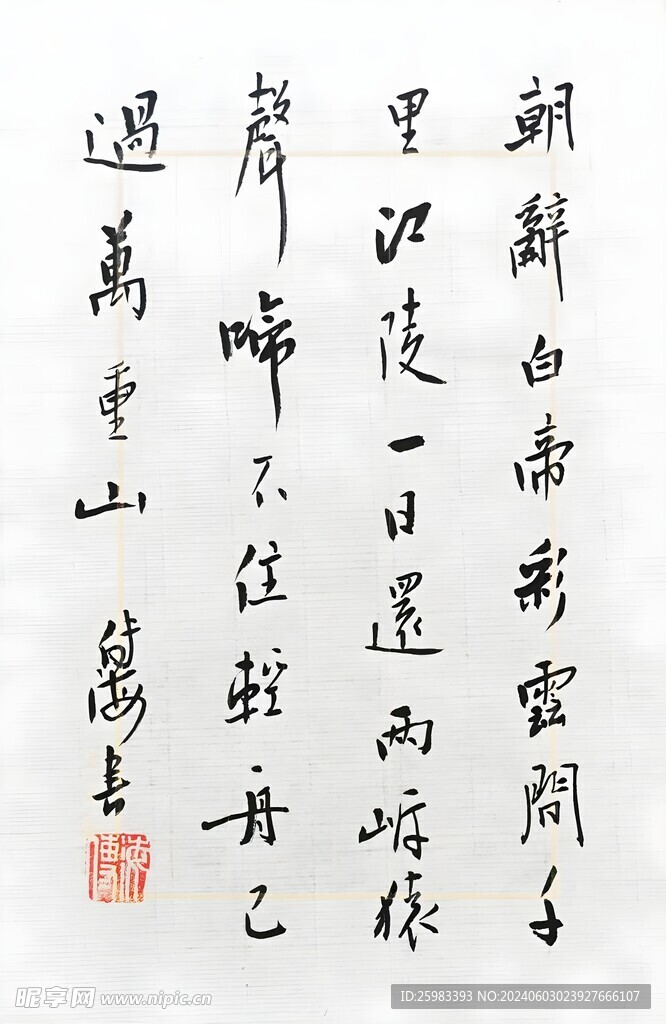 朝辭白帝彩雲間千
里江陵一日還兩岸猿
聲啼不住輕舟已
過萬重山 書
昵享网 www.nipic.cn
ID:25983393 NO:20240603023927666107